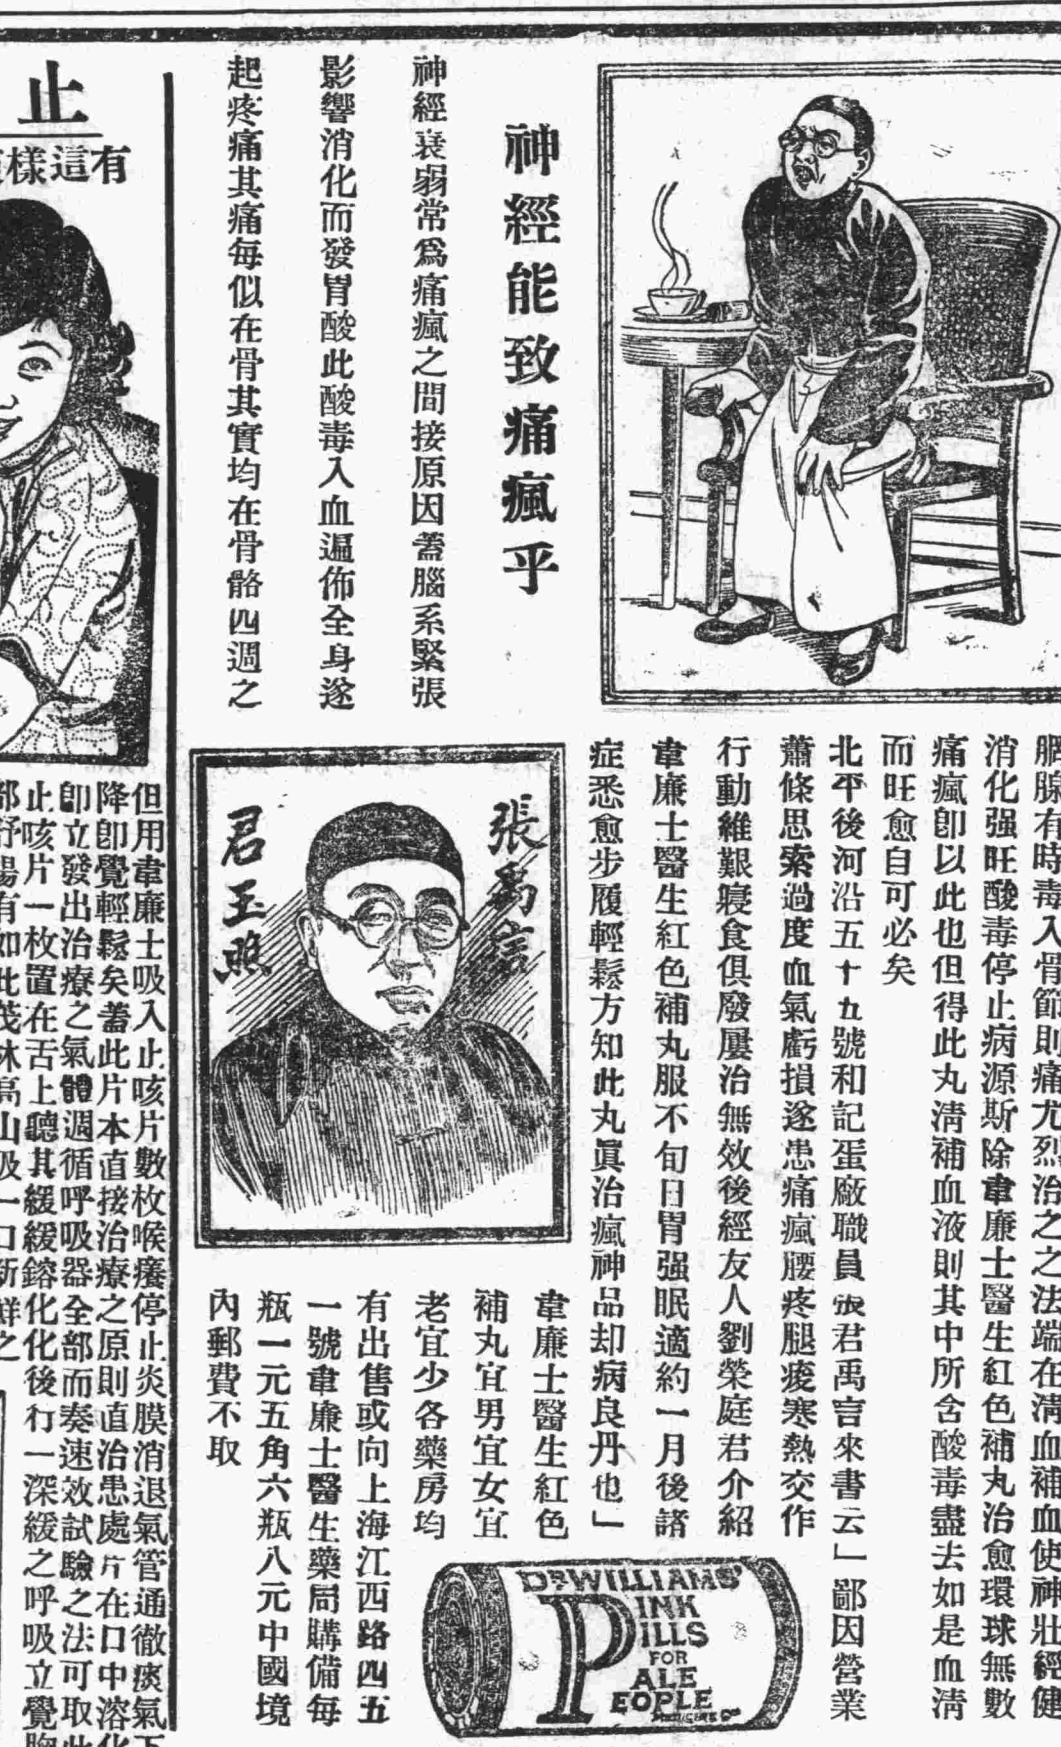 神經能致痛瘋乎
神經衰弱常爲痛瘋之間接原因蓋腦系緊張
影響消化而發胃酸此酸毒入血遍佈全身遂
起疼痛其痛每似在骨其實均在骨骼四週之
腺有時毒入骨節則痛尤烈治之之法端在清血補血使神壯經健
消化强旺酸毒停止病源斯除韋廉士醫生紅色補丸治愈環球無數
痛瘋卽以此也但得此丸淸補血液則其中所含酸毒盡去如是血淸
而旺愈自可必矣
北平後河沿五十九號和記蛋廠職員張君禹言來書云「鄙因營業
蕭條思索過度血氣虧損遂患痛瘋腰疼腿痠寒熱交作
行動維艱寢食俱廢屢治無效後經友人劉榮庭君介紹
韋廉士醫生紅色補丸服不旬日胃强眠適約一月後諸
症悉愈步履輕鬆方知此丸眞治瘋神品却病良丹也」
張禹言
君玉照
韋廉士醫生紅色
補丸宜男宜女宜
老宜少各藥房均
有出售或向上海江西路四五
一號韋廉士醫生藥局購備每
瓶一元五角六瓶八元中國境
內郵費不取
DR WILLIAMS'
PINK
PILLS
FOR
PALE
PEOPLE
止
有這樣
但用韋廉士吸入止咳片數枚喉癢停止炎膜消退氣管通徹痰氣下
降卽覺輕鬆矣蓋此片本直接治療之原則直治患處片在口中溶化
卽立發出治療之氣體週循呼吸器全部而奏速效試驗之法可取此
止咳片一枚置在舌上聽其緩緩鎔化化後行一深緩之呼吸立覺胸
部舒暢有如此茂林高山吸一口新鮮之